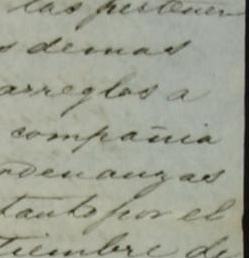 las pertenen
s demas
arreglos a
compañia
rdenanzas
tanto por el
tiembre de